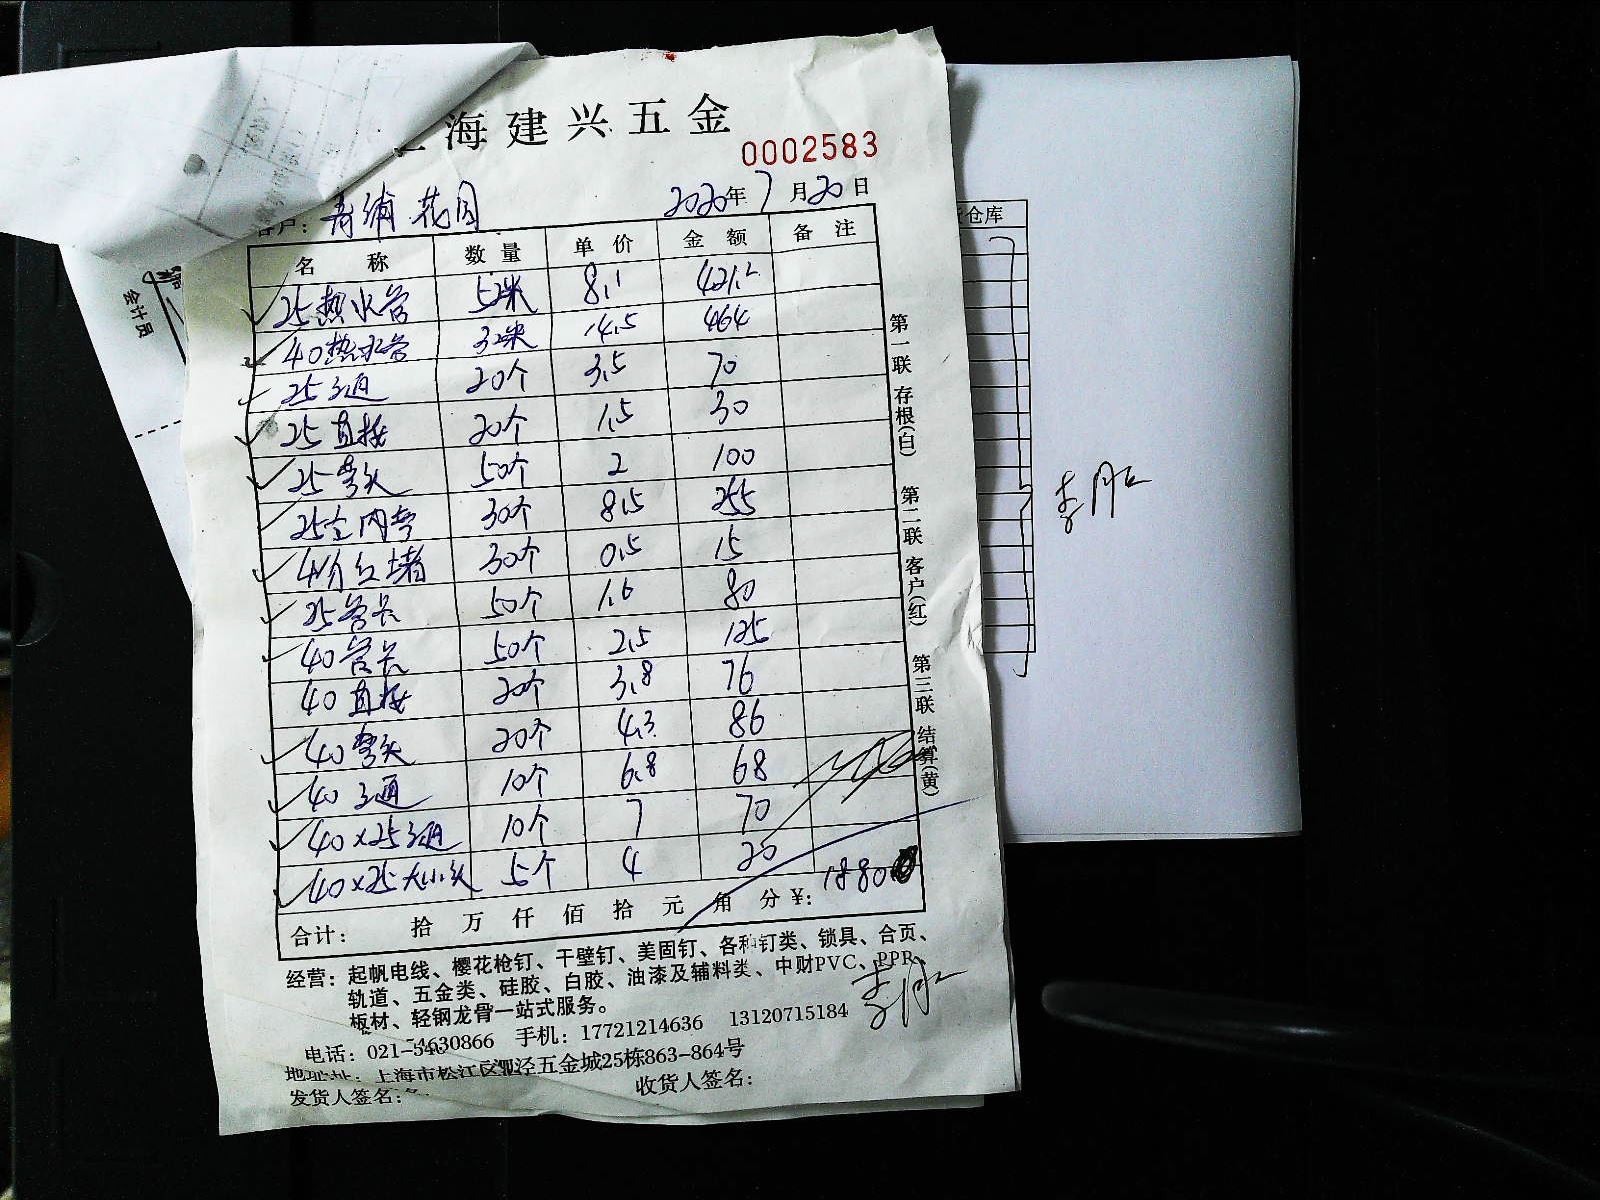 上海建兴五金
0002583
客户: 青浦花园 2020年7月20日
名 称 数 量 单 价 金 额 备 注
25热水管 52米 8.1 421.2
40热水管 32米 14.5 464
25三通 20个 3.5 70
25直接 20个 1.5 30
25弯头 50个 2 100
25 内弯 30个 8.5 255
4分红堵 30个 0.5 15
25管卡 50个 1.6 80
40管卡 50个 2.5 125
40直接 20个 3.8 76
40弯头 20个 4.3 86
40三通 10个 6.8 68
40×25三通 10个 7 70
40×25大小头 5个 4 20
合计: 拾 万 仟 佰 拾 元 角 分 ¥: 1880
第一联 存根(白) 第二联 客户(红) 第三联 结算(黄)
经营: 起帆电线、樱花枪钉、干壁钉、美固钉、各种钉类、锁具、合页、
轨道、五金类、硅胶、白胶、油漆及辅料类、中财PVC、PPR、
板材、轻钢龙骨一站式服务。
电话: 021-54630866 手机: 17721214636 13120715184
地址: 上海市松江区泗泾五金城25栋863-864号
发货人签名: 收货人签名:
会计员
仓库